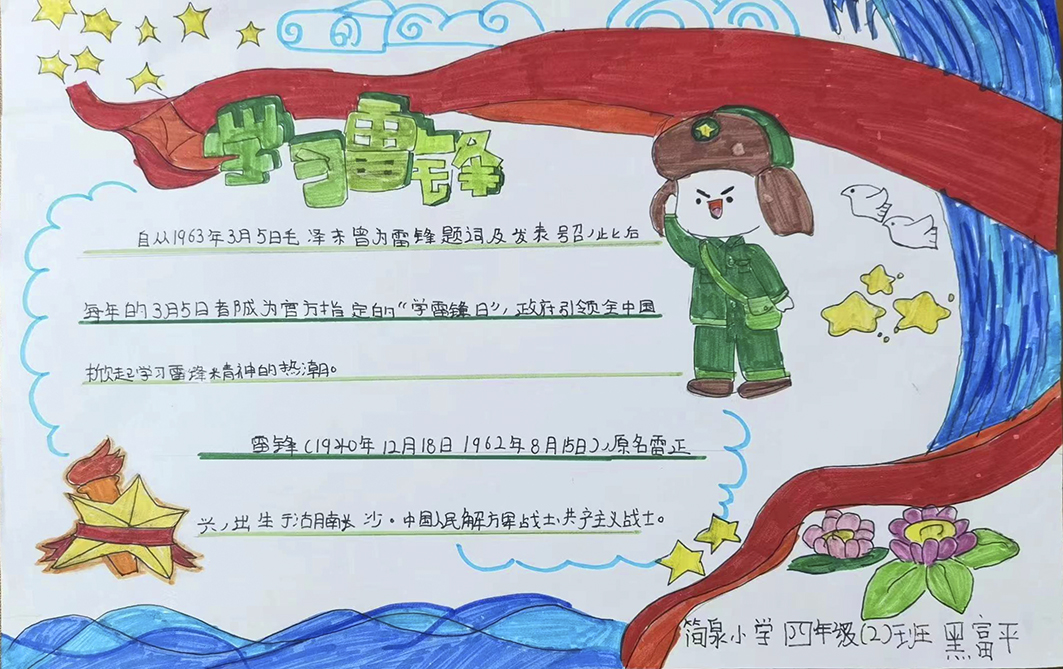 学习雷锋
自从1963年3月5日毛泽东曾为雷锋题词及发表号召,此后
每年的3月5日都成为官方指定的“学雷锋日”,政府引领全中国
掀起学习雷锋精神的热潮。
雷锋(1940年12月18日 1962年8月15日),原名雷正
兴,出生于湖南长沙。中国人民解放军战士、共产主义战士。
简泉小学四年级(2)班 黑富平